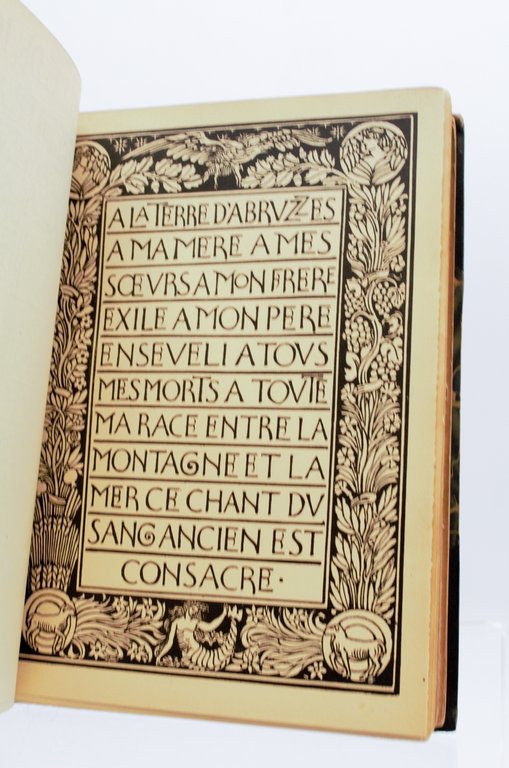 A LA TERRE D'ABRVZZES
A MA MERE A MES
SŒVRS A MON FRERE
EXILE A MON PERE
ENSEVELI A TOVS
MES MORTS A TOVTE
MA RACE ENTRE LA
MONTAGNE ET LA
MER CE CHANT DV
SANG ANCIEN EST
CONSACRE·